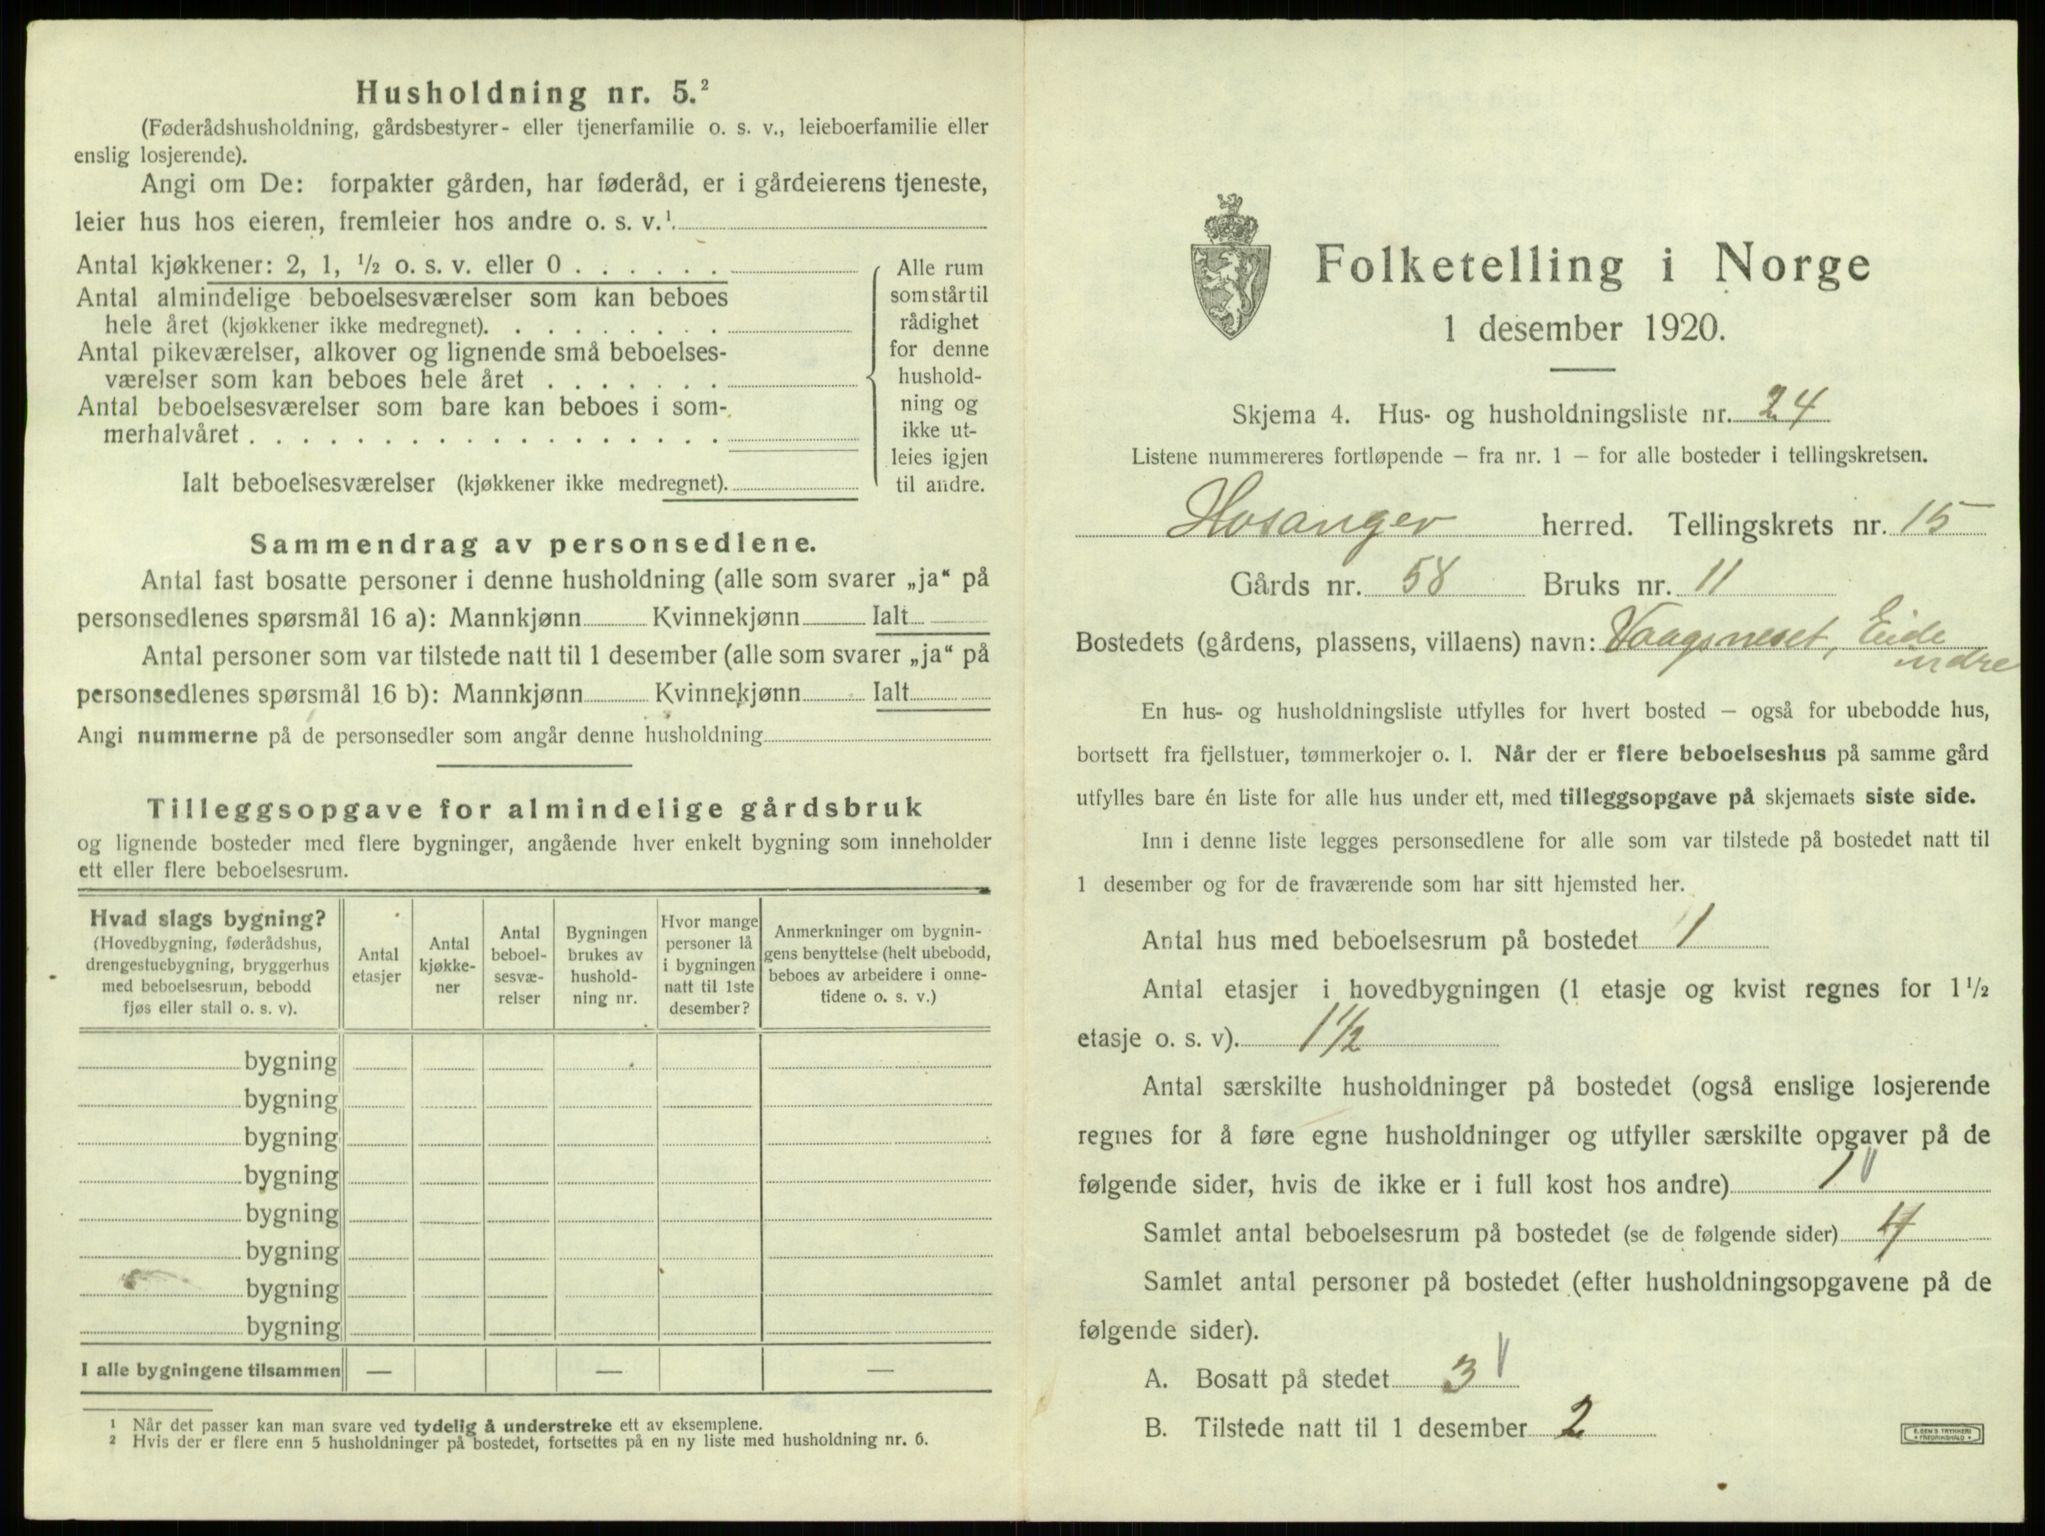 Husholdning nr. 5.²
(Føderådshusholdning, gårdsbestyrer- eller tjenerfamilie o. s. v., leieboerfamilie eller
enslig losjerende).
Angi om De: forpakter gården, har føderåd, er i gårdeierens tjeneste,
leier hus hos eieren, fremleier hos andre o. s. v.¹
Antal kjøkkener: 2, 1, ½ o. s. v. eller 0
Antal almindelige beboelsesværelser som kan beboes
hele året (kjøkkener ikke medregnet).
Antal pikeværelser, alkover og lignende små beboelses-
værelser som kan beboes hele året
Antal beboelsesværelser som bare kan beboes i som-
merhalvåret
Ialt beboelsesværelser (kjøkkener ikke medregnet).
Alle rum
som står til
rådighet
for denne
hushold-
ning og
ikke ut-
leies igjen
til andre.
Sammendrag av personsedlene.
Antal fast bosatte personer i denne husholdning (alle som svarer „ja“ på
personsedlenes spørsmål 16 a): Mannkjønn Kvinnekjønn Ialt
Antal personer som var tilstede natt til 1 desember (alle som svarer „ja“ på
personsedlenes spørsmål 16 b): Mannkjønn Kvinnekjønn Ialt
Angi nummerne på de personsedler som angår denne husholdning
Tilleggsopgave for almindelige gårdsbruk
og lignende bosteder med flere bygninger, angående hver enkelt bygning som inneholder
ett eller flere beboelsesrum.
Hvad slags bygning?
(Hovedbygning, føderådshus,
drengestuebygning, bryggerhus
med beboelsesrum, bebodd
fjøs eller stall o. s. v).
Antal
etasjer
Antal
kjøkke-
ner
Antal
beboel-
sesvæ-
relser
Bygningen
brukes av
hushold-
ning nr.
Hvor mange
personer lå
i bygningen
natt til 1ste
desember?
Anmerkninger om bygnin-
gens benyttelse (helt ubebodd,
beboes av arbeidere i onne-
tidene o. s. v.)
bygning
bygning
bygning
bygning
bygning
bygning
bygning
bygning
I alle bygningene tilsammen — — —
¹ Når det passer kan man svare ved tydelig å understreke ett av eksemplene.
² Hvis der er flere enn 5 husholdninger på bostedet, fortsettes på en ny liste med husholdning nr. 6.
Folketelling i Norge
1 desember 1920.
Skjema 4. Hus- og husholdningsliste nr. 24
Listene nummereres fortløpende – fra nr. 1 – for alle bosteder i tellingskretsen.
Hosanger herred. Tellingskrets nr. 15
Gårds nr. 58 Bruks nr. 11
Bostedets (gårdens, plassens, villaens) navn: Vaagsneset, Eide
indre
En hus- og husholdningsliste utfylles for hvert bosted – også for ubebodde hus,
bortsett fra fjellstuer, tømmerkojer o. l. Når der er flere beboelseshus på samme gård
utfylles bare én liste for alle hus under ett, med tilleggsopgave på skjemaets siste side.
Inn i denne liste legges personsedlene for alle som var tilstede på bostedet natt til
1 desember og for de fraværende som har sitt hjemsted her.
Antal hus med beboelsesrum på bostedet 1
Antal etasjer i hovedbygningen (1 etasje og kvist regnes for 1½
etasje o. s. v). 1½
Antal særskilte husholdninger på bostedet (også enslige losjerende
regnes for å føre egne husholdninger og utfyller særskilte opgaver på de
følgende sider, hvis de ikke er i full kost hos andre) 1
Samlet antal beboelsesrum på bostedet (se de følgende sider) 4
Samlet antal personer på bostedet (efter husholdningsopgavene på de
følgende sider).
A. Bosatt på stedet 3
B. Tilstede natt til 1 desember 2